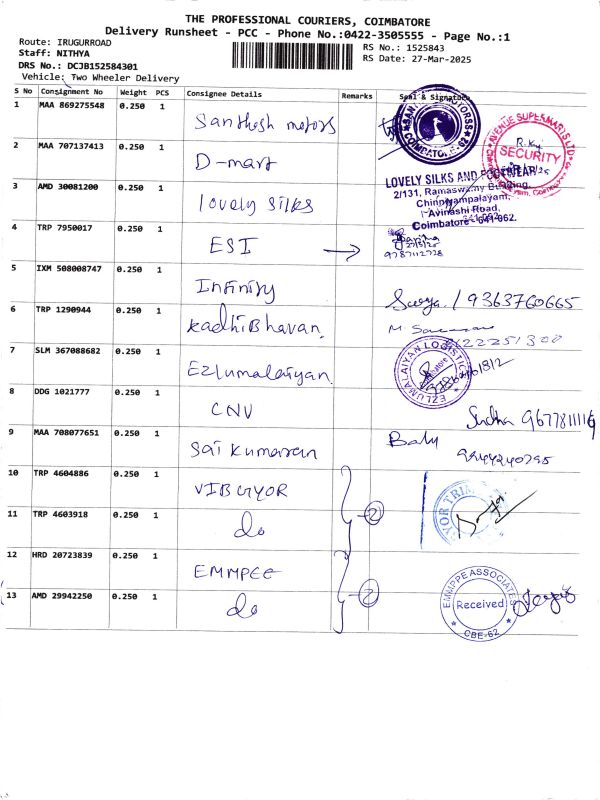 THE PROFESSIONAL COURIERS, COIMBATORE
Delivery Runsheet - PCC - Phone No.:0422-3505555 - Page No.:1
Route: IRUGURROAD
RS No.: 1525843
Staff: NITHYA
RS Date: 27-Mar-2025
DRS No.: DCJB152584301
Vehicle: Two Wheeler Delivery
S No Consignment No Weight PCS Consignee Details Remarks Seal & Signature
1 MAA 869275548 0.250 1 Santhosh motors
COIMBATORE
2 MAA 707137413 0.250 1 D-mart
AVENUE SUPERMARTS LTD
SECURITY
3 AMD 30081200 0.250 1 lovely silks
LOVELY SILKS AND FOOTWEAR
2/131, Ramaswamy Building,
Chinniyampalayam,
Avinashi Road,
Coimbatore - 641 062.
4 TRP 7950017 0.250 1 ESI
27/3/25
9787112728
5 IXM 508008747 0.250 1 Infinity
Surya / 9363760665
6 TRP 1290944 0.250 1 KadhiBhavan
7 SLM 367088682 0.250 1 Ezlumalaiyan
EZLUMALAIYAN LOGISTICS
8 DDG 1021777 0.250 1 CNV
Sudha 9677811116
9 MAA 708077651 0.250 1 Sai Kumaran
Balu
9244240795
10 TRP 4604886 0.250 1 VIBGYOR
11 TRP 4603918 0.250 1 do
2
12 HRD 20723839 0.250 1 EMMPEE
13 AMD 29942250 0.250 1 do
2
EMMPPE ASSOCIATES
Received
CBE-62